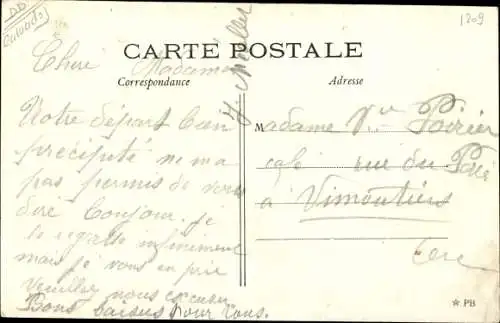 DD
Calvados
1209
CARTE POSTALE
Correspondance
Adresse
Cheri Madame
Notre départ bien
précipité ne m'a
pas permis de vous
dire bonjour. je
le regrette infiniment
mais je vous en prie
Veuillez nous excuser
Bons baisers pour vous.
Madame Vve Poirier
café rue du
à Vimoutiers
Orne
☆ PB